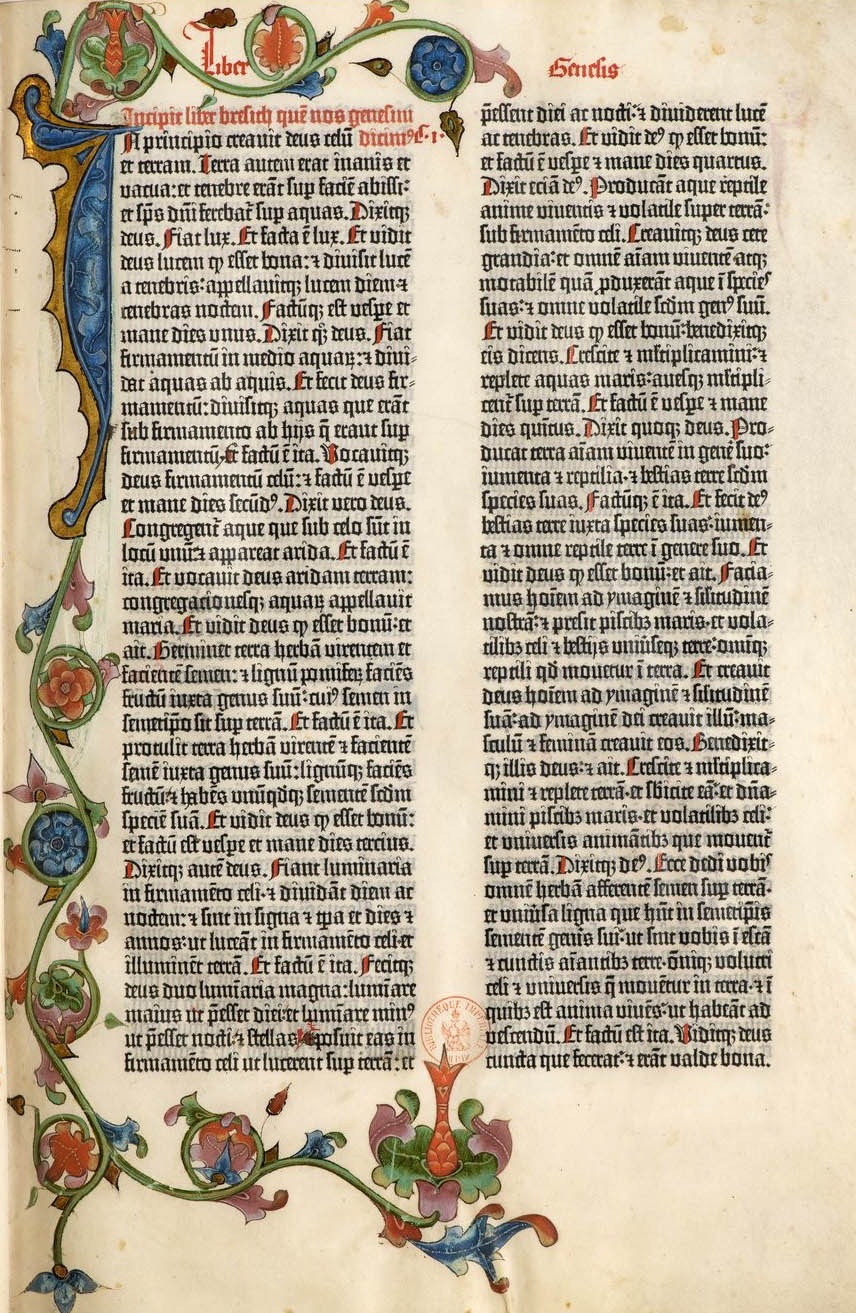 Liber Genesis
Incipit liber bresich quē nos genesim
In principio creavit deus celū dicim⁹ C. 1.
et terram. Terra autem erat inanis et
vacua: et tenebre erāt sup faciē abissi:
et sp̄s dn̄i ferebat̄ sup aquas. Dixitq;
deus. Fiat lux. Et facta ē lux. Et vidit
deus lucem ꝙ esset bona: ⁊ divisit lucē
a tenebris: appellavitq; lucem diem ⁊
tenebras noctem. Factūq; est vespe et
mane dies unus. Dixit qq; deus. Fiat
firmamentū in medio aquaꝝ: ⁊ divi-
dat aquas ab aquis. Et fecit deus fir-
mamentū: divisitq; aquas que erāt
sub firmamento ab hijs q̄ erant sup
firmamentū. Et factū ē ita. Vocavitq;
deus firmamentū celū: ⁊ factū ē vespe
et mane dies secūd⁹. Dixit vero deus.
Congregent̄ aque que sub celo sūt in
locū unū: ⁊ appareat arida. Et factū ē
ita. Et vocavit deus aridam terram:
congregacionesq; aquaꝝ appellavit
maria. Et vidit deus ꝙ esset bonū: et
ait. Germinet terra herbā virentem et
facientē semen: ⁊ lignū pomiferū faciēs
fructū iuxta genus suū: cui⁹ semen in
semetip̄o sit sup terrā. Et factū ē ita. Et
protulit terra herbā virentē ⁊ facientē
semē iuxta genus suū: lignūq; faciēs
fructū ⁊ habēs unūqdq; sementē scdm
speciē suā. Et vidit deus ꝙ esset bonū:
et factū est vespe et mane dies tercius.
Dixitq; autē deus. Fiant luminaria
in firmamēto celi. ⁊ dividāt diem ac
noctem: ⁊ sint in signa ⁊ tp̄a et dies ⁊
annos: ut luceāt in firmamēto celi et
illuminēt terrā. Et factū ē ita. Fecitq;
deus duo lumīaria magna: lumīare
maius ut p̄esset diei: et lumīare min⁹
ut p̄esset nocti: ⁊ stellas. ⁊ posuit eas in
firmamēto celi ut lucerent sup terrā: et
p̄essent diei ac nocti: ⁊ dividerent lucē
ac tenebras. Et vidit de⁹ ꝙ esset bonū:
et factū ē vespe ⁊ mane dies quartus.
Dixit eciā de⁹. Producāt aque reptile
anime viventis ⁊ volatile super terrā:
sub firmamēto celi. Creavitq; deus cete
grandia: et omnē aīam viventē atq;
motabilē quā ꝓduxerāt aque ī species
suas: ⁊ omne volatile scdm gen⁹ suū.
Et vidit deus ꝙ esset bonū: benedixitq;
eis dicens. Crescite ⁊ mltiplicamini: ⁊
replete aquas maris: avesq; mltipli-
cent̄ sup terrā. Et factū ē vespe ⁊ mane
dies quītus. Dixit quoq; deus. Pro-
ducat terra aīam viventē in genē suo:
iumenta ⁊ reptilia. ⁊ bestias terre scdm
species suas. Factūq; ē ita. Et fecit de⁹
bestias terre iuxta species suas: iumen-
ta ⁊ omne reptile terre ī genere suo. Et
vidit deus ꝙ esset bonū: et ait. Facia-
mus hoīem ad ymaginē ⁊ silitudinē
nostrā: ⁊ presit piscibꝫ maris. et vola-
tilibꝫ celi ⁊ bestijs univerſeq; terre: omīq;
reptili qd̄ movetur ī terra. Et creavit
deus hoīem ad ymaginē ⁊ silitudinē
suā: ad ymaginē dei creavit illū: ma-
sculū ⁊ feminā creavit eos. Benedixit-
q; illis deus: ⁊ ait. Crescite ⁊ mltiplica-
mini ⁊ replete terrā. et sbicite eā: et dn̄a-
mini piscibꝫ maris. et volatilibꝫ celi:
et universis animātibꝫ que movent̄
sup terrā. Dixitq; de⁹. Ecce dedi vobis
omnē herbā afferentē semen sup terrā.
et univ̄sa ligna que hn̄t in semetip̄is
sementē genīs sui: ut sint vobis ī escā
⁊ cunctis aīantibꝫ terre. oīq; volucri
celi ⁊ universis q̄ movētur in terra. ⁊ ī
quibꝫ est anima vivēs: ut habeāt ad
vescendū. Et factū est ita. Viditq; deus
cuncta que fecerat: ⁊ erāt valde bona.